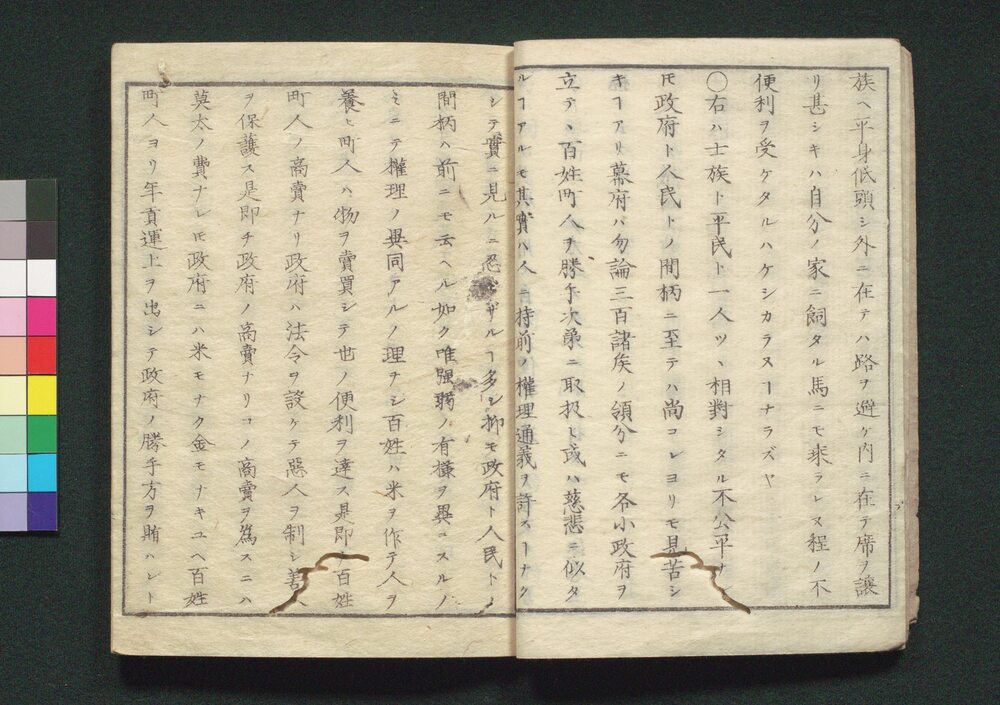 族ヘ平身低頭シ外ニ在テハ路ヲ避ケ内ニ在テ席ヲ讓
リ甚シキハ自分ノ家ニ飼タル馬ニモ乘ラレヌ程ノ不
便利ヲ受ケタルハケシカラヌヿナラズヤ
〇右ハ士族ト平民ト一人ツヽ相對シタル不公平ナ
レ𪜈政府ト人民トノ間柄ニ至テハ尚コレヨリモ見苦シ
キヿアリ幕府ハ勿論三百諸矦ノ領分ニモ各小政府ヲ
立テヽ百姓町人ヲ勝手次第ニ取扱ヒ或ハ慈悲ニ似タ
ルヿアルモ其實ハ人ニ持前ノ權理通義ヲ許スヿナク
シテ實ニ見ルニ忍ビザルヿ多シ抑モ政府ト人民トノ
間柄ハ前ニモ云ヘル如ク唯強弱ノ有樣ヲ異ニスルノ
ミニテ權理ノ異同アルノ理ナシ百姓ハ米ヲ作テ人ヲ
養ヒ町人ハ物ヲ賣買シテ世ノ便利ヲ達ス是即チ百姓
町人ノ商賣ナリ政府ハ法令ヲ設ケテ惡人ヲ制シ善人
ヲ保護ス是即チ政府ノ商賣ナリコノ商賣ヲ爲スニハ
莫太ノ費ナレ𪜈政府ニハ米モナク金モナキユヘ百姓
町人ヨリ年貢運上ヲ出シテ政府ノ勝手方ヲ賄ハント